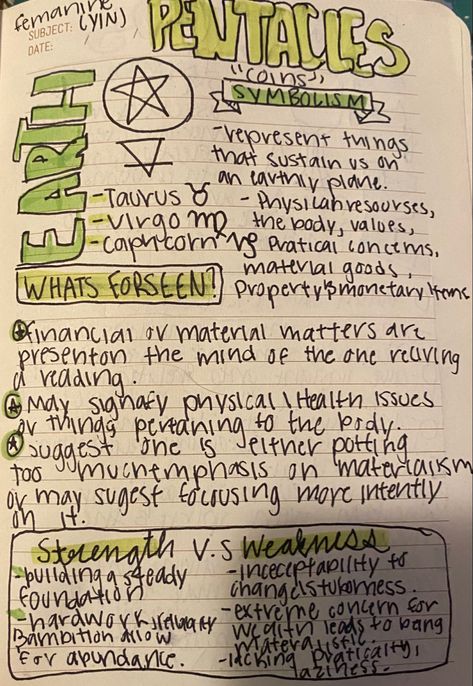 femanine
(YIN)
SUBJECT:
DATE: / /
PENTACLES
"coins"
SYMBOLISM
EARTH
-represent things
that sustain us on
an earthly plane.
-Taurus ♉
-Virgo ♍
-Capricorn ♑
-Physical resourses,
the body, values,
Pratical concerns,
material goods,
Property's monetary items
WHATS FORSEEN!
financial or material matters are
present on the mind of the one reciving
a reading.
May signafy physical \ Health issues
or things pertaining to the body.
suggest one is either potting
too much emphasis on materialism
or may sugest focusing more intently
on it.
Strength V.S Weakness
-building a steady
foundation
-hardwork
ambition allow
for abundance.
-inceceptability to
change
-extreme concern for
wealth leads to bang
materalistic
-lacking praticalty,
laziness.